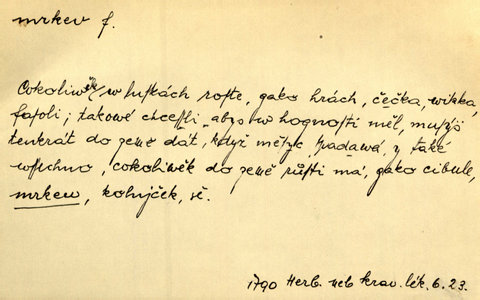 mrkev f.
Cokoliwěk w luſkách roſte, gako hrách, čečka, wikka,
faſoli; takowé chceſſli, abys w hognoſti měl, muſýš
tenkrát do země dát, když měſýc ſpadawá, y také
wſſechno, cokoliwěk do země růſti má, gako cibule,
mrkew, kolnjček, ſč.
1790 Herb. neb krav. lék. 6. 23.